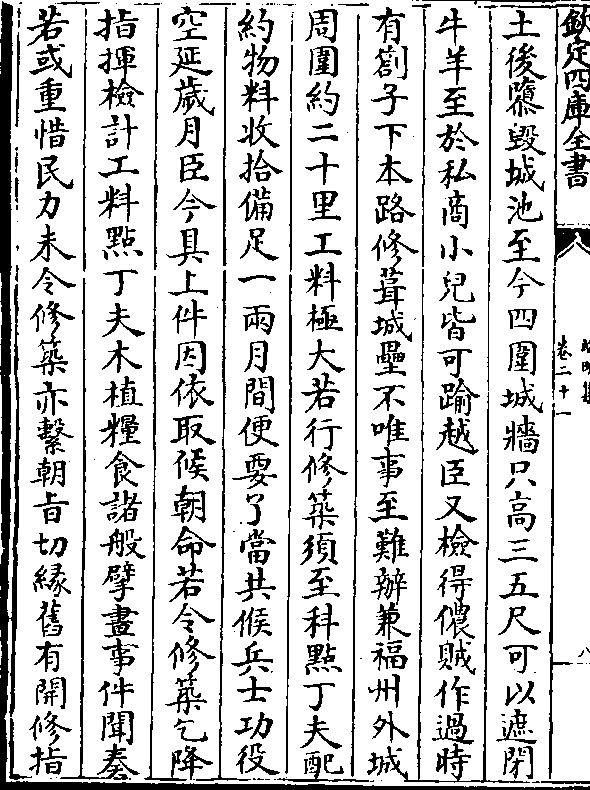 欽定四庫全書
卷二十一
八
土後隳毀城池至今四圍城牆只高三五尺可以遮閉
牛羊至於私商小兒皆可踰越臣又檢得儂賊作過時
有劄子下本路修葺城壘不唯事至難辦兼福州外城
周圍約二十里工料極大若行修築須至科點丁夫配
約物料收拾備足一兩月間便要了當其候兵士功役
空延歲月臣今具上件因依取候朝命若令修築乞降
指揮檢計工料點丁夫木植糧食諸般擘畫事件聞奏
若或重惜民力未令修築亦繫朝旨切緣舊有開修指